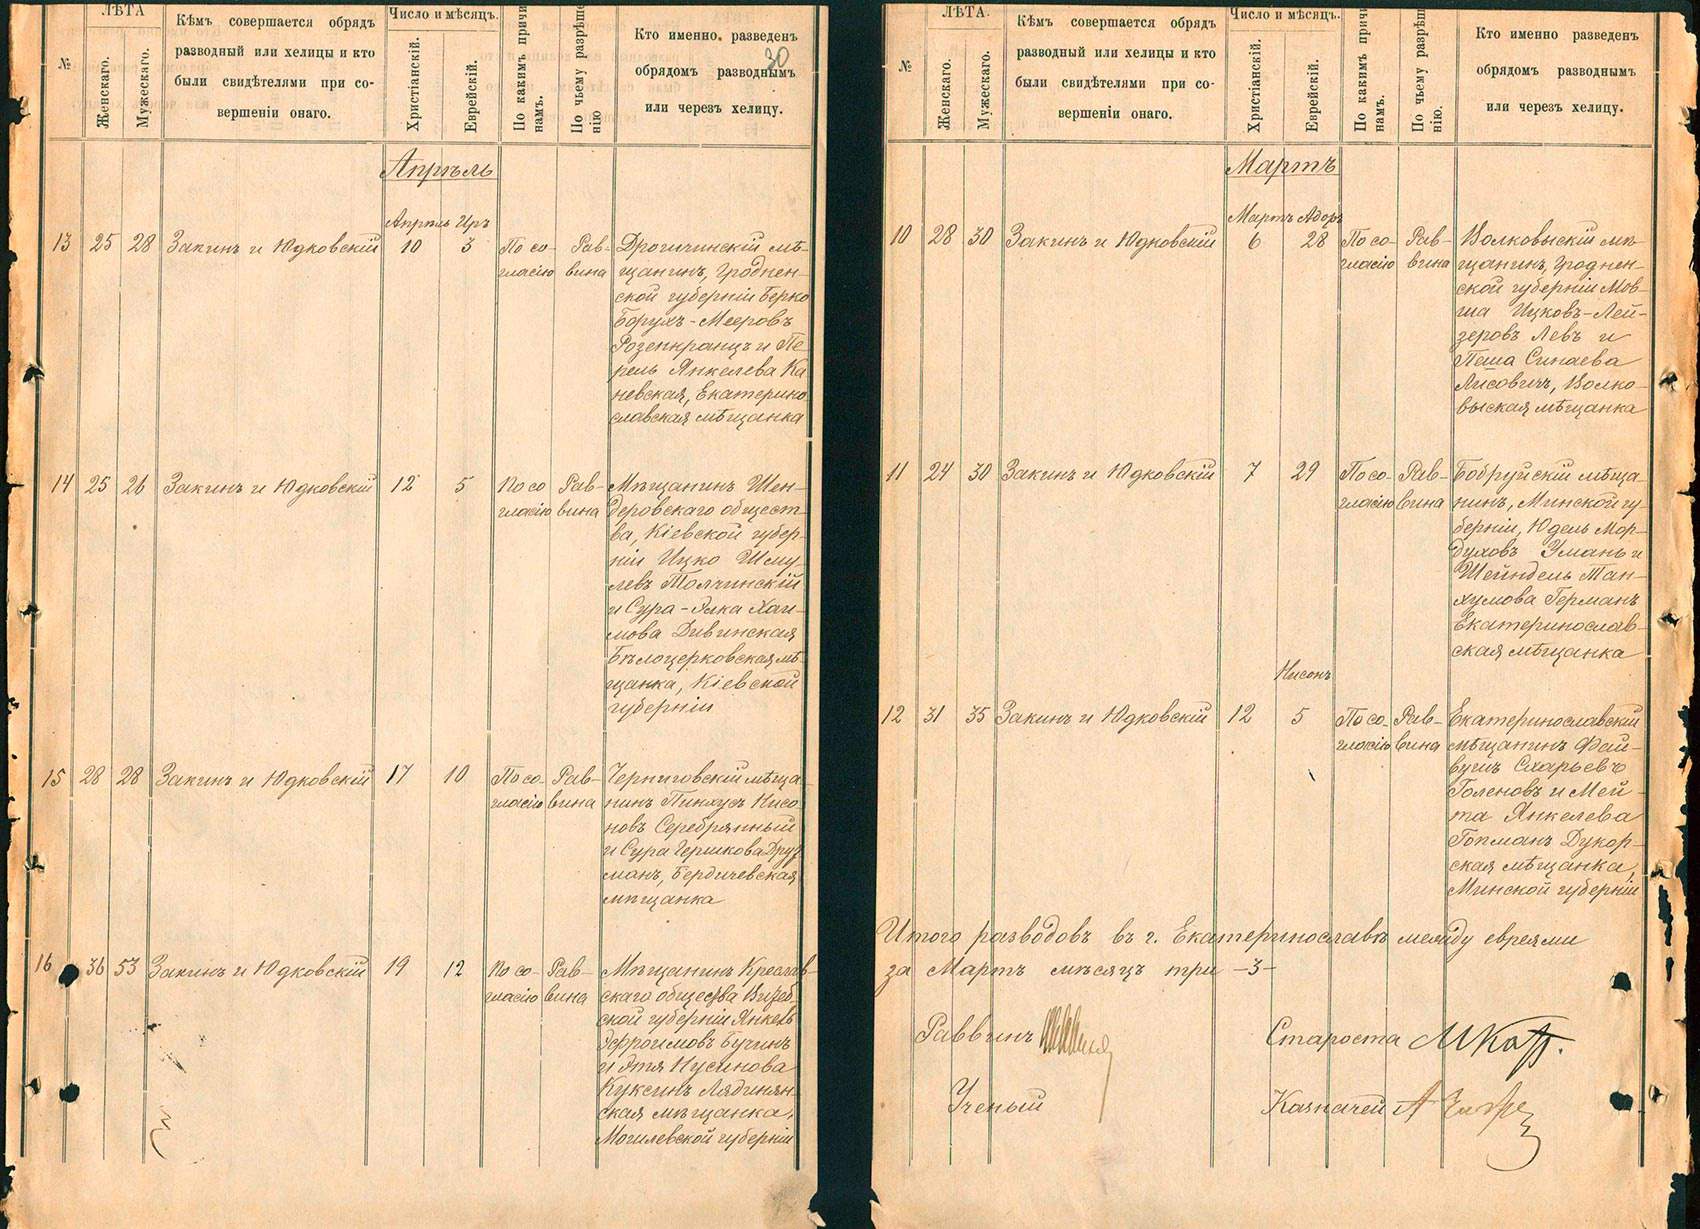 ЛѢТА
№
Женскаго.
Мужескаго.
Кѣмъ совершается обрядъ
разводный или хелицы и кто
были свидѣтелями при со-
вершеніи онаго.
Число и мѣсяцъ.
Христіанскій.
Еврейскій.
По какимъ причи
намъ.
По чьему разрѣше
нію
Кто именно. разведенъ
обрядомъ разводнымъ
или черезъ хелицу.
30
Апрѣль
Апрѣль Иръ
13 25 28 Закинъ и Юдковскій 10 3 По со- Рав- Дрогичинскій мѣ-
гласію вина щанинъ, Гроднен-
ской губерніи Берко
Борухъ-Мееровъ
Розенкранцъ и Пе
рель Янкелева Ка
невская, Екатерино
славская мѣщанка
14 25 26 Закинъ и Юдковскій 12 5 По со Рав- Мѣщанинъ Шен-
гласію вина деровскаго общест-
ва, Кіевской губер-
ніи Ицко Шму-
левъ Толчинскій
и Сура-Элка Хаи-
мова Дивинская
Бѣлоцерковская мѣ-
щанка, Кіевской
губерніи
15 28 28 Закинъ и Юдковскій 17 10 По со- Рав- Черниговскій мѣща
гласію вина нинъ Пинхусъ Нисо
новъ Серебрянный
и Сура Гершкова Друз
манъ, Бердичевская
мѣщанка
16 36 53 Закинъ и Юдковскій 19 12 По со- Рав- Мѣщанинъ Креслав-
гласію вина скаго общества Витеб
ской губерніи Янкель
Эфроимовъ Бучинъ
и Этя Нусинова
Куксинъ Лядинян-
ская мѣщанка,
Могилевской губерніи
ЛѢТА.
№
Женскаго.
Мужескаго.
Кѣмъ совершается обрядъ
разводный или хелицы и кто
были свидѣтелями при со-
вершеніи онаго.
Число и мѣсяцъ.
Христіанскій.
Еврейскій.
По какимъ причи
намъ.
По чьему разрѣш
нію.
Кто именно разведенъ
обрядомъ разводнымъ
или черезъ хелицу.
Мартъ
Мартъ Адоръ
10 28 30 Закинъ и Юдковскій 6 28 По со- Рав- Волковыскій мѣ-
гласію вина щанинъ, Гроднен-
ской губерніи Мов-
ша Ицковъ-Лей-
зеровъ Левъ и
Пеша Синаева
Лисовичъ, Волко-
выская мѣщанка
11 24 30 Закинъ и Юдковскій 7 29 По со- Рав- Бобруйскій мѣща-
гласію вина нинъ, Минской гу-
берніи, Юдель Мор-
духовъ Уманъ и
Шейндель Тан-
хумова Германъ
Екатеринослав-
ская мѣщанка
Нисонъ
12 31 35 Закинъ и Юдковскій 12 5 По со- Рав- Екатеринославскій
гласію вина мѣщанинъ Фай-
вушъ Схарьевъ
Голеновъ и Мей-
та Янкелева
Гопманъ Дукор-
ская мѣщанка,
Минской губерніи
Итого разводовъ въ г. Екатеринославѣ между евреями
за Мартъ мѣсяцъ три -3-
Раввинъ
Староста
Ученый
Казначей